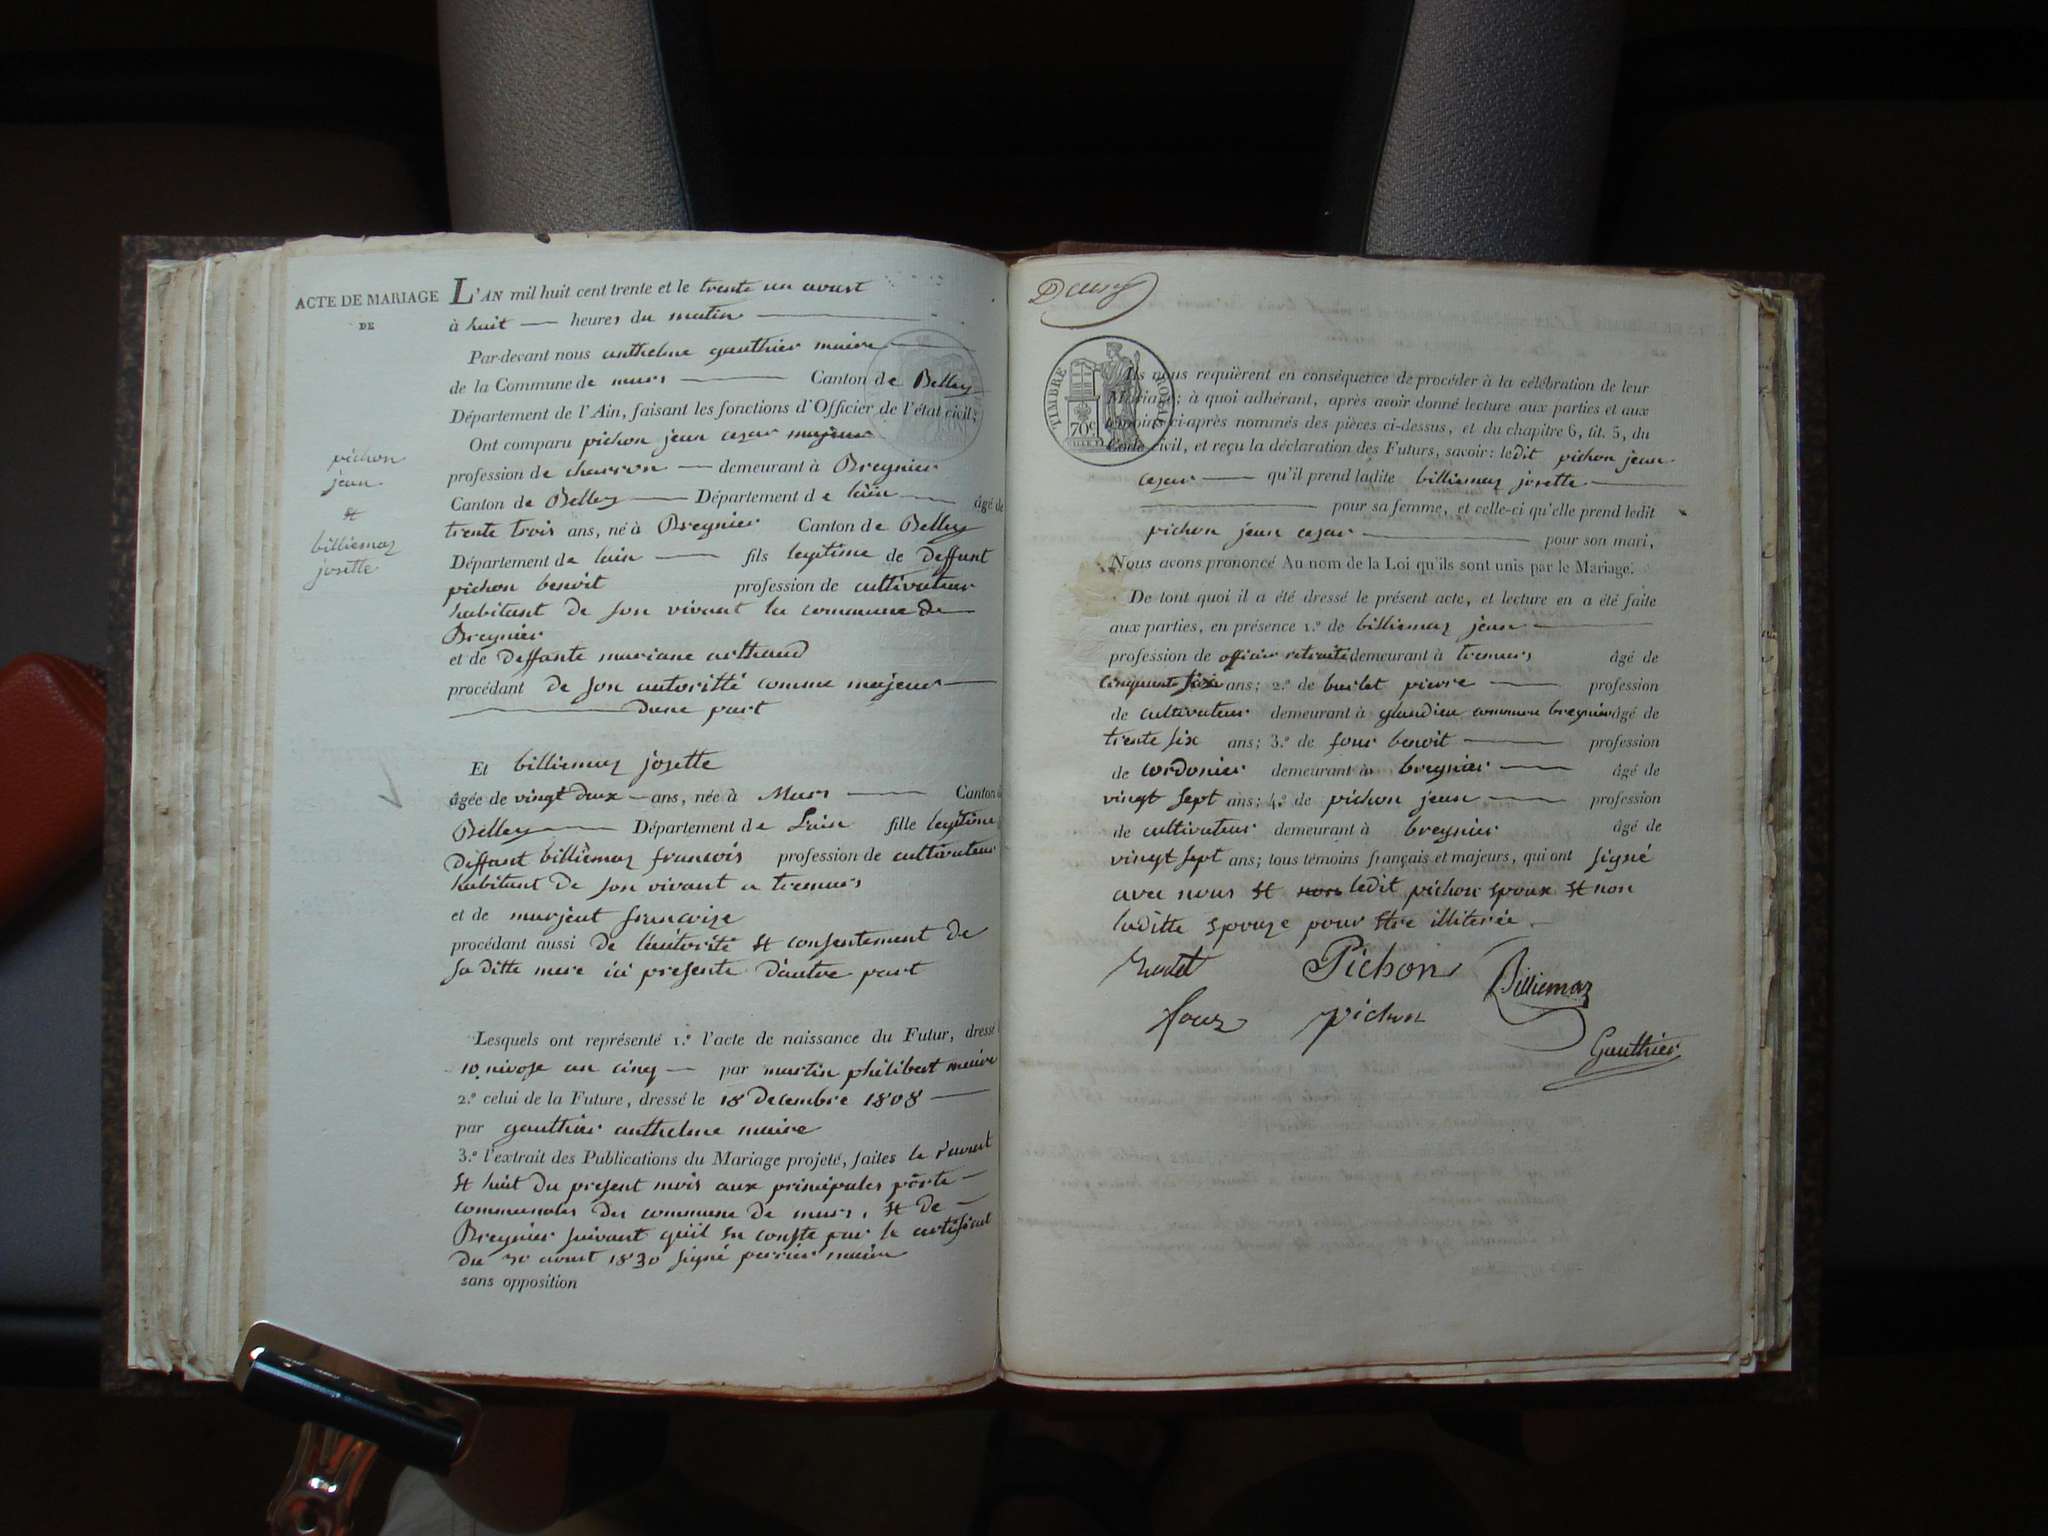 ACTE DE MARIAGE
DE
pichon
jean
et
billiemaz
josette
L'AN mil huit cent trente et le trente un avust
à huit — heures du matin —
Par-devant nous anthelme gauthier maire —
de la Commune de murs — Canton de Belley
Département de l'Ain, faisant les fonctions d'Officier de l'état civil;
Ont comparu pichon jean cezar majeur
profession de charron — demeurant à Bregnier
Canton de Belley — Département de lain — âgé de
trente trois ans, né à Bregnier Canton de Belley
Département de lain — fils legitime de deffunt
pichon benoit profession de cultivateur
habitant de son vivant la commune de —
Bregnier
et de deffante mariane arthaud
procédant de son autoritté comme majeur —
— dune part
Et billiemaz josette
âgée de vingt deux — ans, née à Murs — Canton d
Belley — Département de Lain fille legitime d
deffant billiemaz francois profession de cultivateur
habitant de son vivant a tremurs
et de marjeat francoize
procédant aussi de lautorité et consentement de
sa ditte mere ici presente d'autre part
Lesquels ont représenté 1.º l'acte de naissance du Futur, dressé l
10 nivose an cinq — par martin philibert maire
2.º celui de la Future, dressé le 18 decembre 1808 —
par gauthier anthelme maire
3.º l'extrait des Publications du Mariage projeté, faites le r'avust
et huit du present mois aux principales porte —
communales des commune de murs, et de —
Bregnier suivant quïl en conste par le certificat
du 30 avust 1830 signé perrier maire
sans opposition
TIMBRE ROYAL
70c
Ils nous requièrent en conséquence de procéder à la célébration de leur
Mariage; à quoi adhérant, après avoir donné lecture aux parties et aux
témoins ci-après nommés des pièces ci-dessus, et du chapitre 6, tit. 5, du
Code civil, et reçu la déclaration des Futurs, savoir: ledit pichon jean
cezar — qu'il prend ladite billiemaz josette —
— pour sa femme, et celle-ci qu'elle prend ledit
pichon jean cezar — pour son mari,
Nous avons prononcé Au nom de la Loi qu'ils sont unis par le Mariage.
De tout quoi il a été dressé le présent acte, et lecture en a été faite
aux parties, en présence 1.º de billiemaz jean —
profession de officier retraité demeurant à tremurs âgé de
cinquante six ans; 2.º de burlet pierre — profession
de cultivateur demeurant à glandieu commun bregnier âgé de
trente six ans; 3.º de four benoit — profession
de cordonier demeurant à bregnier — âgé de
vingt sept ans; 4.º de pichon jean — profession
de cultivateur demeurant à bregnier âgé de
vingt sept ans; tous témoins français et majeurs, qui ont signé
avec nous et non ledit pichon epoux et non
laditte epouze pour etre illiterée —
Pichon
Billiemaz
four pichon
Gauthier